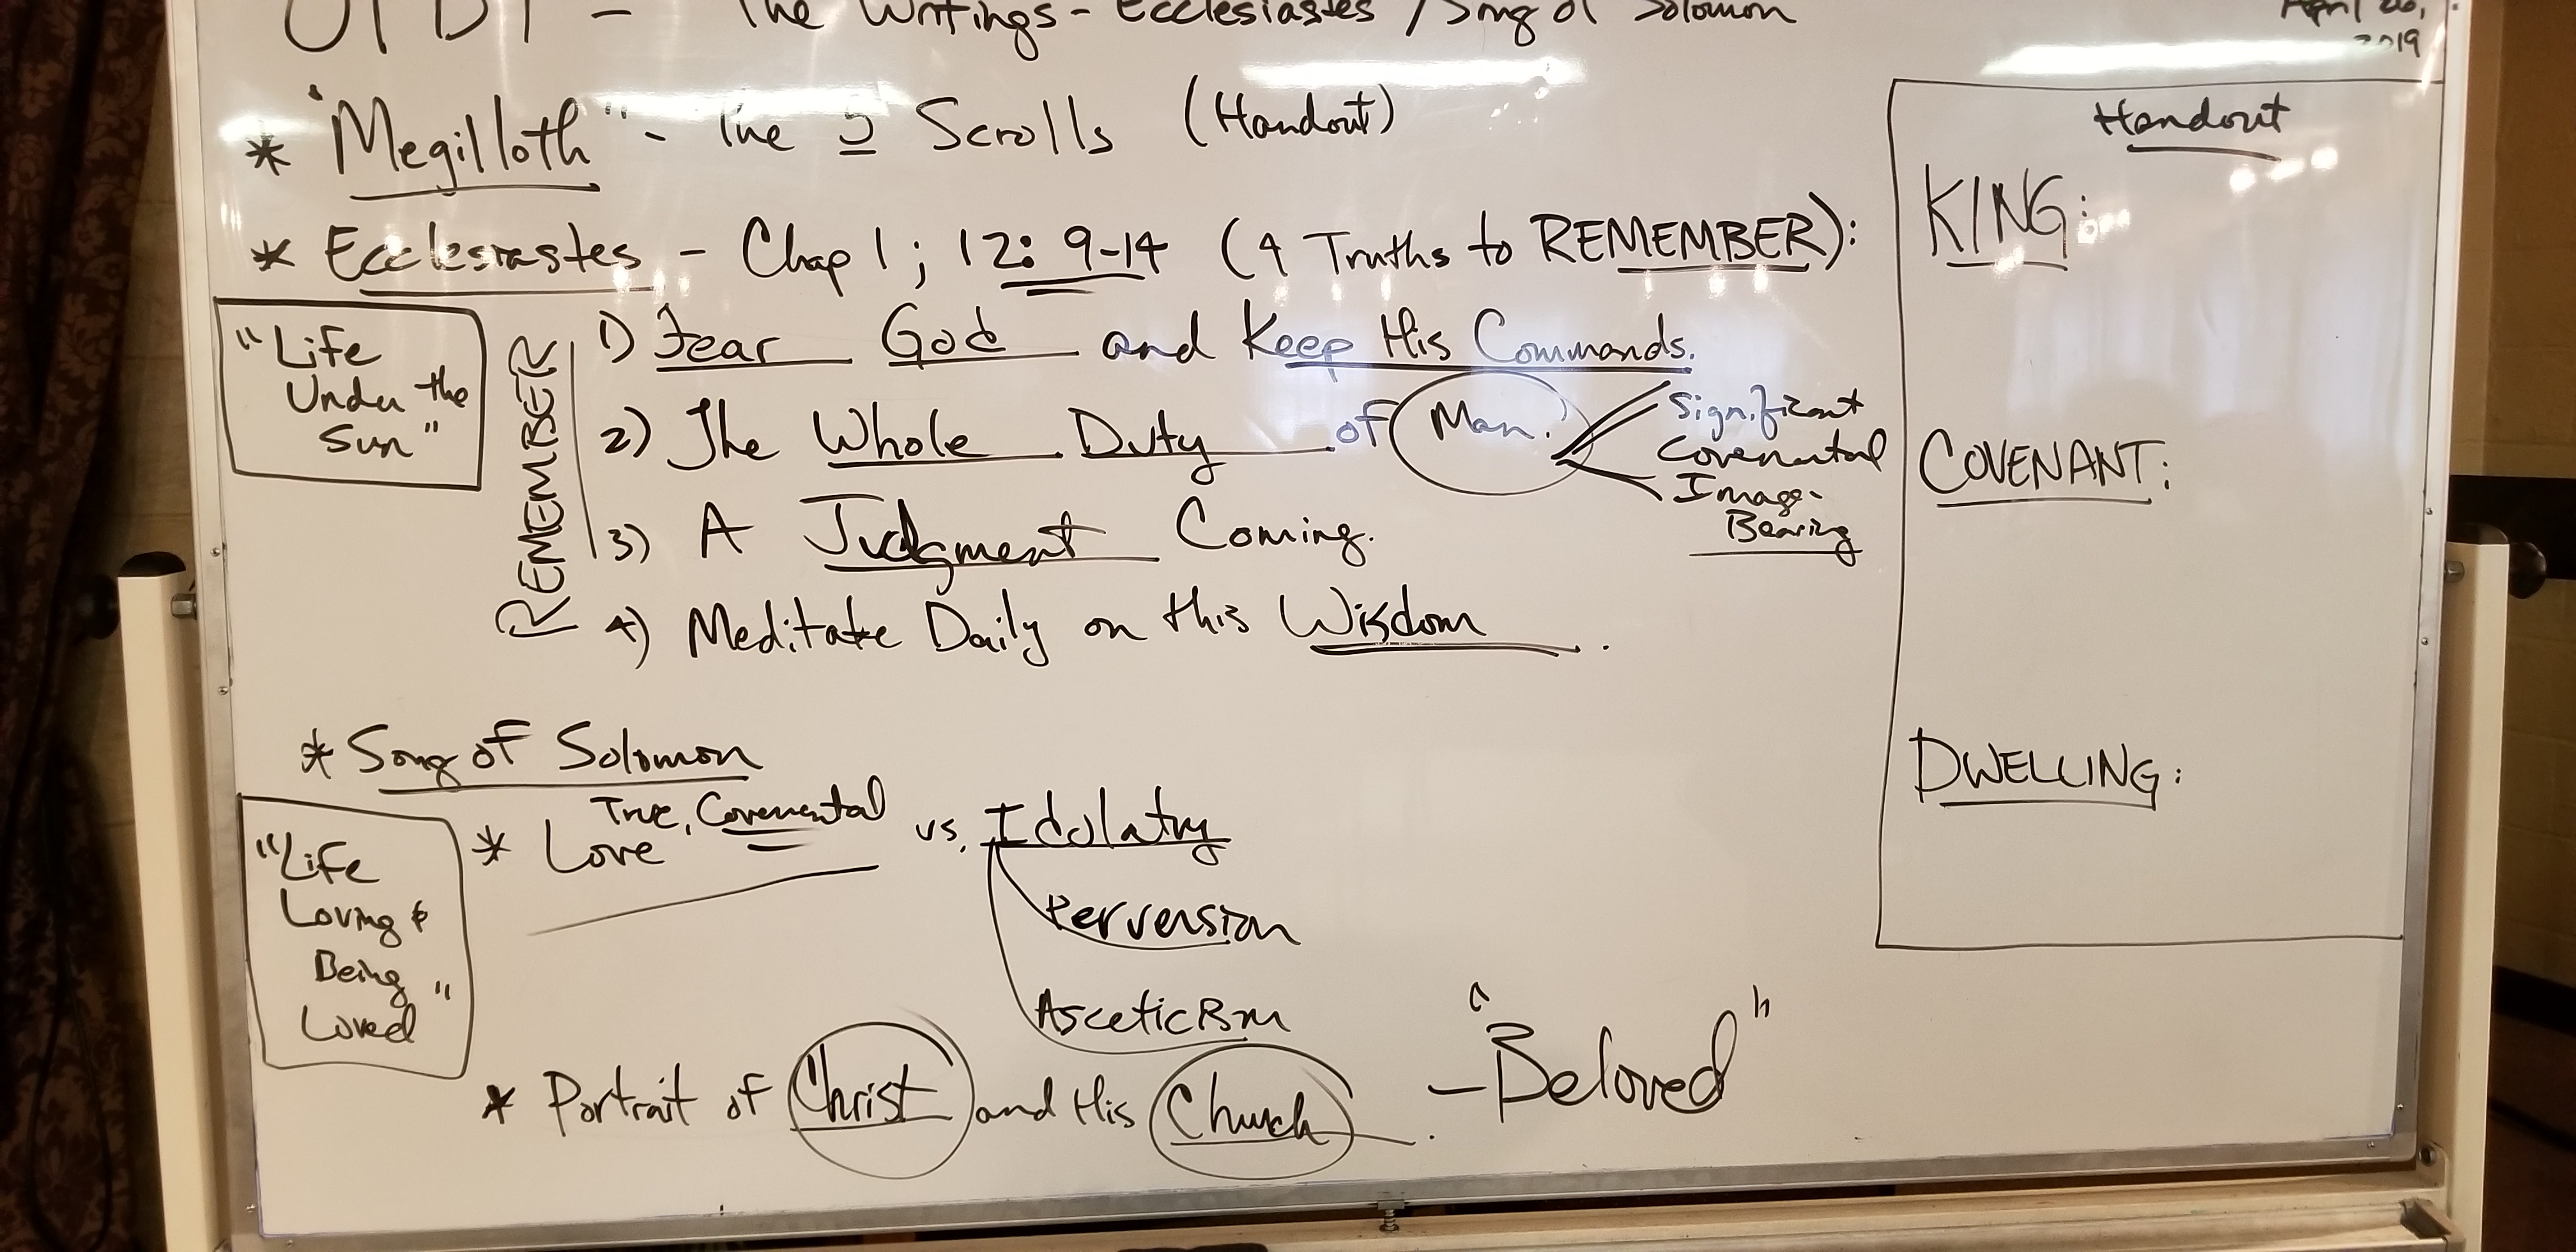 The Writings - Ecclesiastes / Song of Solomon
April 26,
2019
* "Megilloth" - The 5 Scrolls (Handout)
* Ecclesiastes - Chap 1; 12: 9-14 (4 Truths to REMEMBER):
"Life
Under the
Sun"
REMEMBER
1) Fear God and Keep His Commands.
2) The Whole Duty of Man.
Significant
Covenantal
Image-
Bearing
3) A Judgment Coming.
4) Meditate Daily on this Wisdom.
* Song of Solomon
"Life
Loving &
Being
Loved"
True, Covenantal
* Love vs. Idolatry
Perversion
Asceticism
* Portrait of Christ and His Church. - "Beloved"
Handout
KING:
COVENANT:
DWELLING: